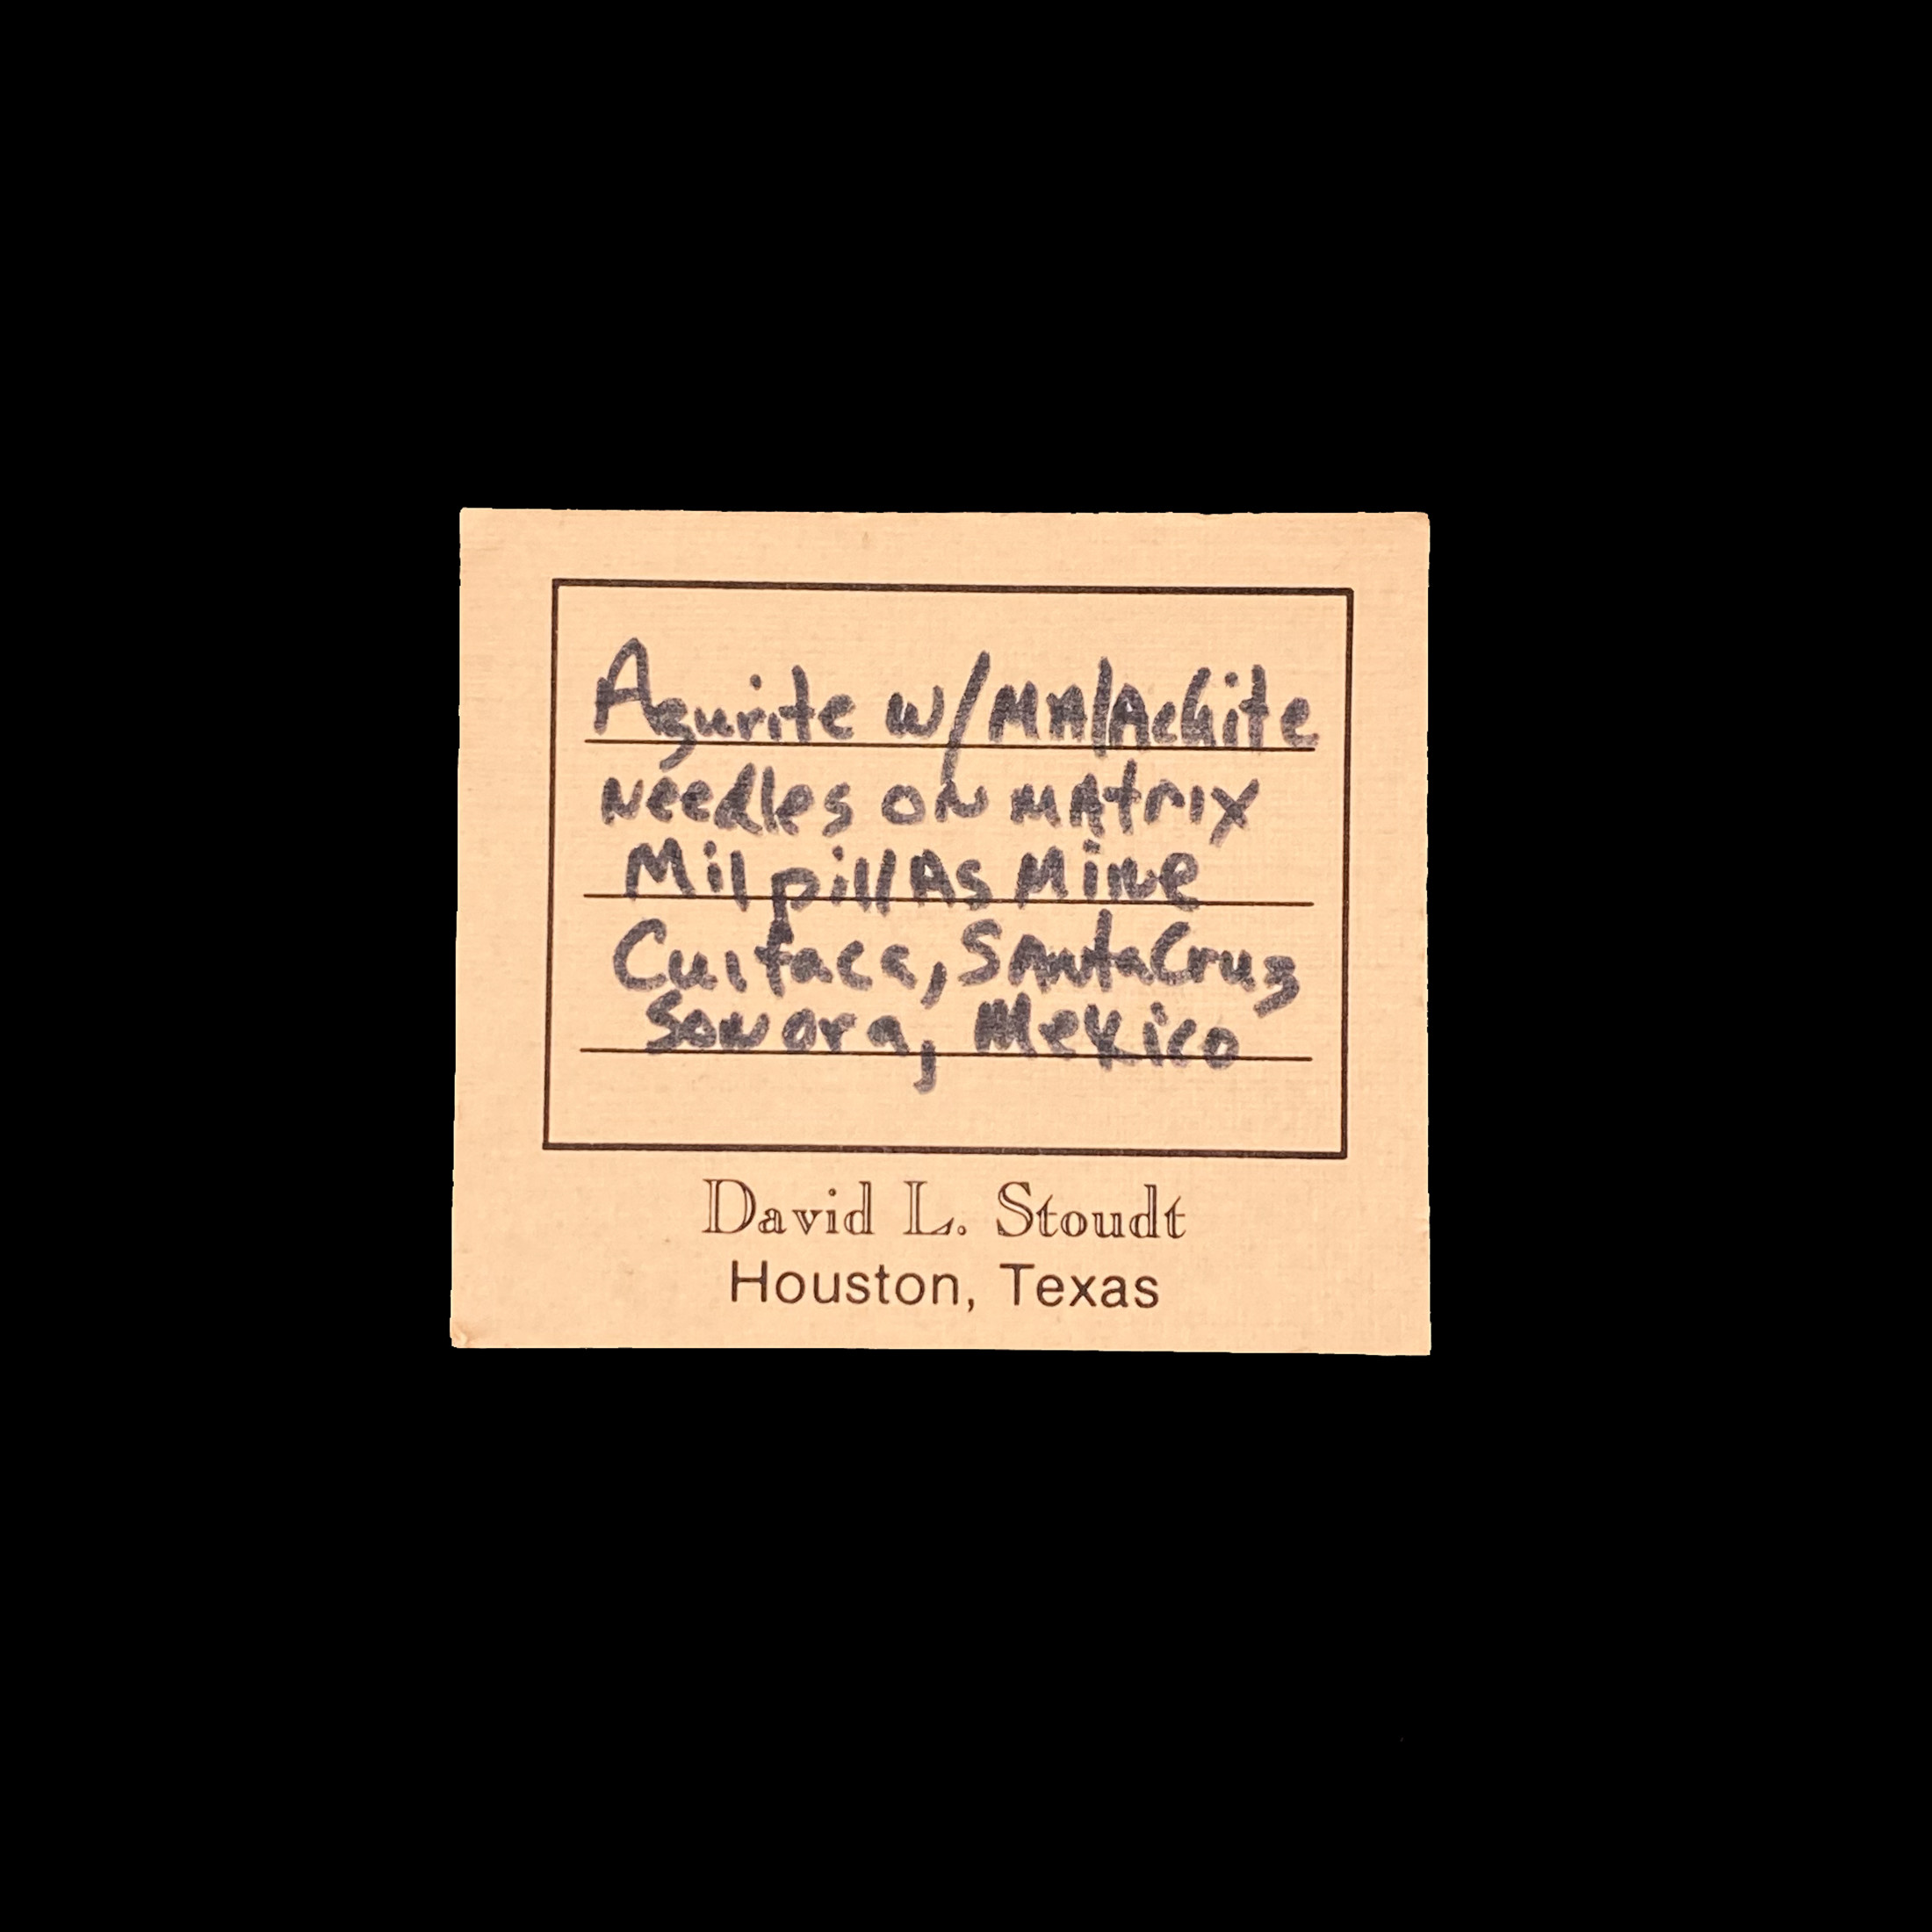 Azurite w/ Malachite
Needles on matrix
Milpillas Mine
Cuitaca, Santa Cruz
Sonora, Mexico
David L. Stoudt
Houston, Texas